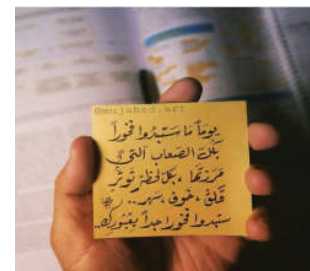 @mujahed.art
يوماً ما ستبدوا فخوراً
بكل الصعاب التي
مررتها ، بكل لحظة توتر
قلق ، خوف ، سهر ..
ستبدوا فخورا جداً بعبورك ..